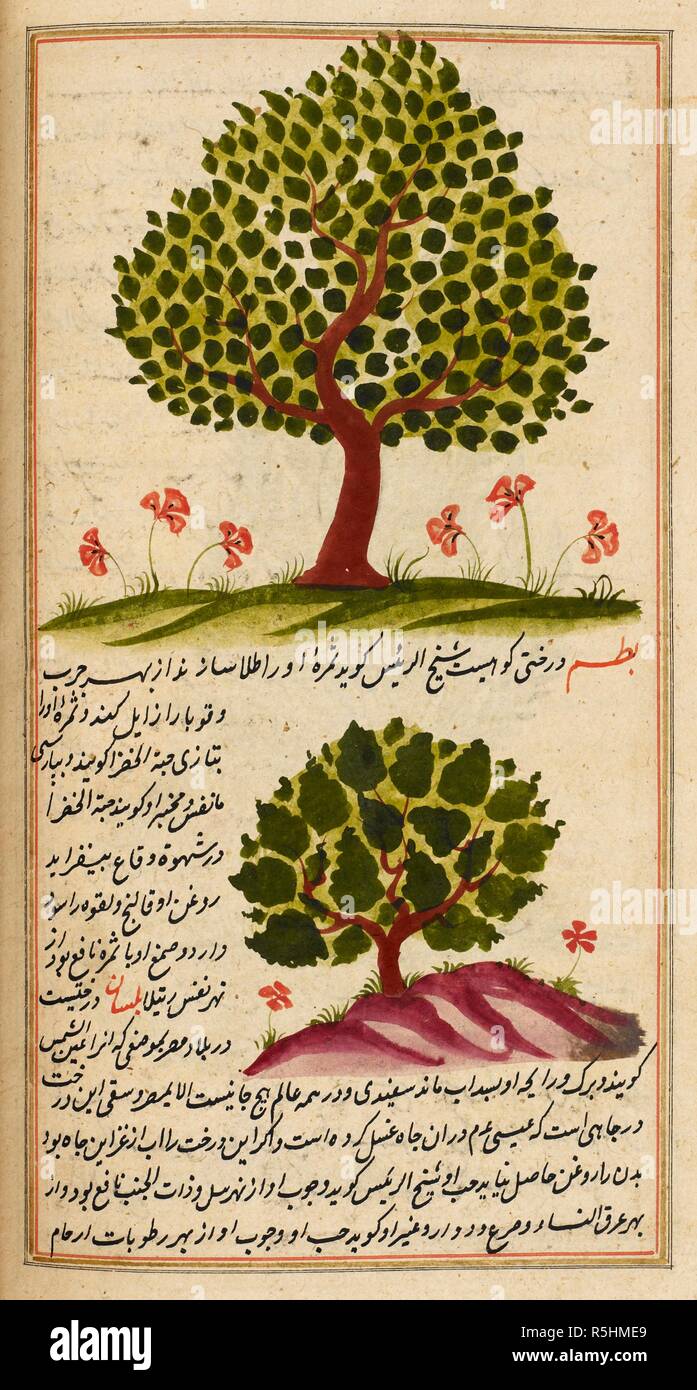 بطم درختی کوهیست شیخ الرئیس کوید ثمرهٔ او را طلا سازند از بهر جرب
و قوبا را زایل کند و ثمرهٔ او را
بتازی حبة الخضرا کویند و بپارسی
او کویند حبة الخضرا
در شهوة وقاع بیفزاید
روغن او فالج و لقوه را سود
دارد و صمغ او با ثمره نافع بود از
بهر نفس رتیلا بلسان درختیست
در بلاد مصر بموضعی که انرا عین الشمس
کویند و برک و رایحه او بسداب ماند سفیدی و در همه عالم هیچ جا نیست الا بمصر و سقی این درخت
در چاهی است که عیسی عم در ان چاه غسل کرده است و اکر این درخت را اب از غیر این چاه بود
بدن را روغن حاصل نیاید حب او شیخ الرئیس کوید و چوب او از بهر سل و ذات الجنب نافع بود و از
بهر عرق النساء و صرع و دوار و غیر او کوید حب او و چوب او از بهر رطوبات ارحام
alamy
alamy
Image ID: R5HME9
www.alamy.com